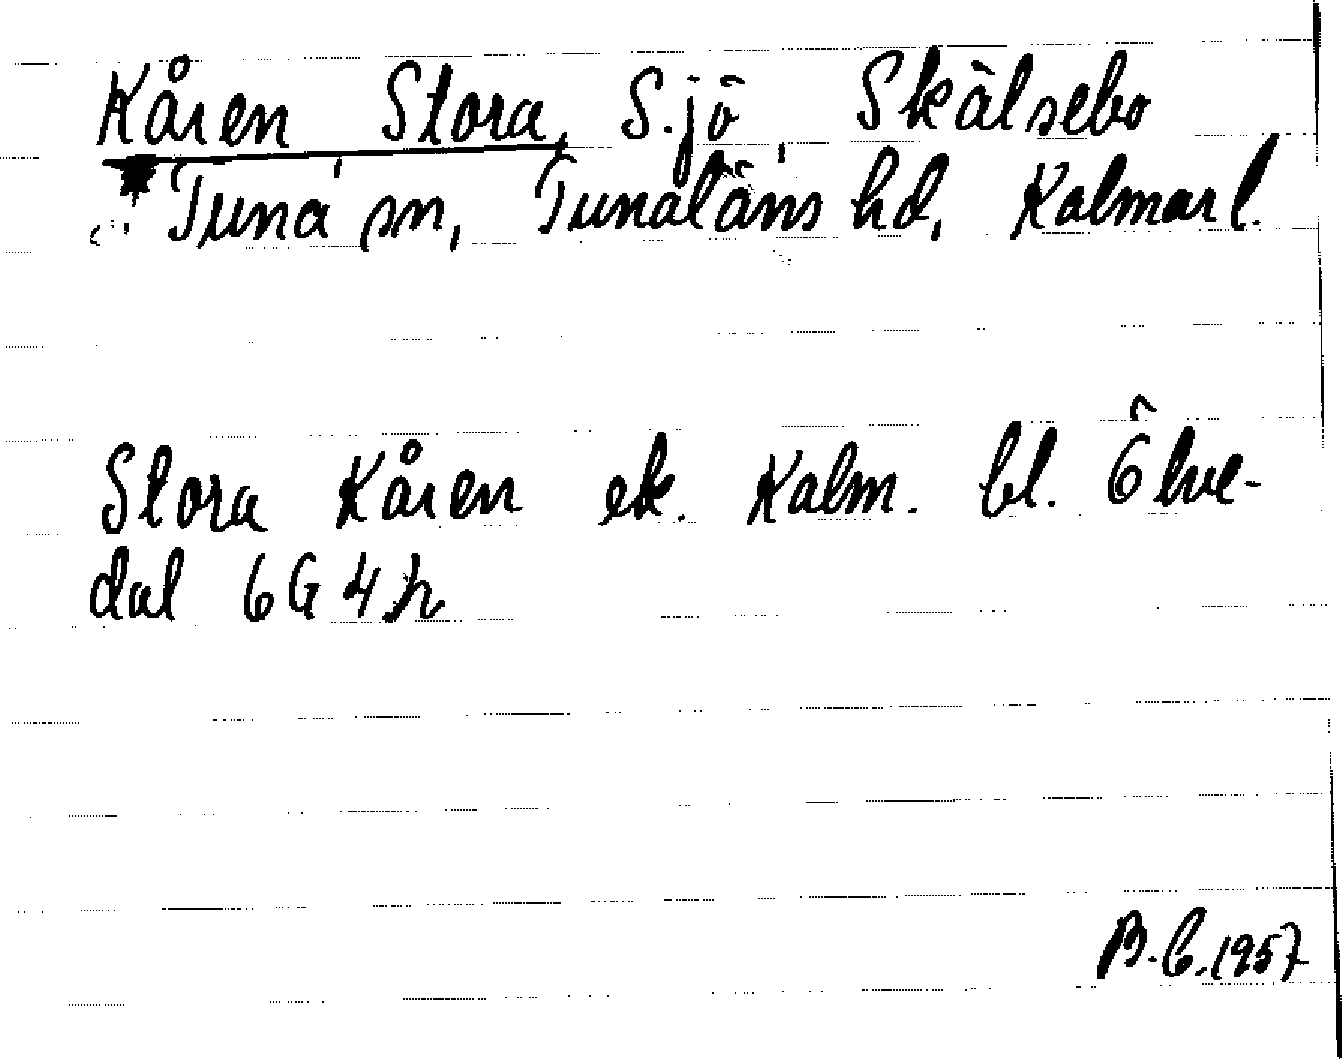 Kåren Stora, S.jö, Skälsebo
Tuna sn, Tunaläns hd, Kalmar l.
Stora Kåren ek. Kalm. bl. Ölve-
dal 6G4h
B.C.1957